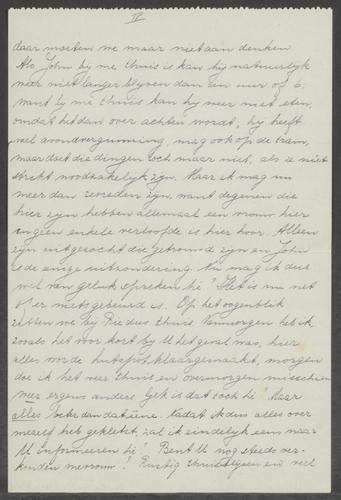 IV
daar moeten we maar niet aan denken
Als John bij me thuis is kan hij natuurlijk
weer niet langer blijven dan een uur of 6,
want bij me thuis kan hij weer niet eten,
omdat het dan over achten wordt, hij heeft
wel avondvergunning, mag ook op de tram,
maar doet die dingen toch maar niet, als ze niet
strikt noodzakelijk zijn. Maar ik mag nu
meer dan tevreden zijn, want degenen die
hier zijn hebben allemaal een vrouw hier
en geen enkele verloofde is hier hoor. Alleen
zijn uitgezocht die getrouwd zijn en John
is de enige uitzondering. Nu mag ik dus
wel van geluk spreken hè? Het is nu net
of er niets gebeurd is. Op het oogenblik
zitten we bij Rie dus thuis. Vanmorgen heb ik,
zooals het voor kort bij U het geval was, hier
alles voor de hutspot klaargemaakt, morgen
doe ik het weer thuis en overmorgen misschien
weer ergens anders. Gek is dat toch hè? Maar
alles beter dan dat ééne. Nadat ik dus alles over
mezelf heb gekletst, zal ik eindelijk eens naar
U informeeren hè? Bent U nog steeds ver-
kouden mevrouw? Rustig thuis blijven en veel